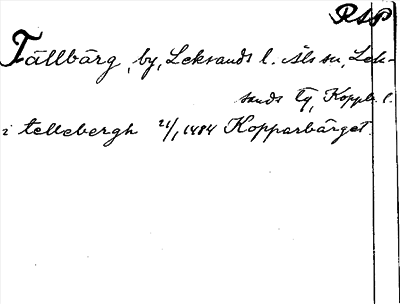 RAP
Tällbärg, by, Leksands l. Åls sn, Lek-
sands tg, Koppb. l.
i tellebergh 21/1 1484 Kopparbärget.